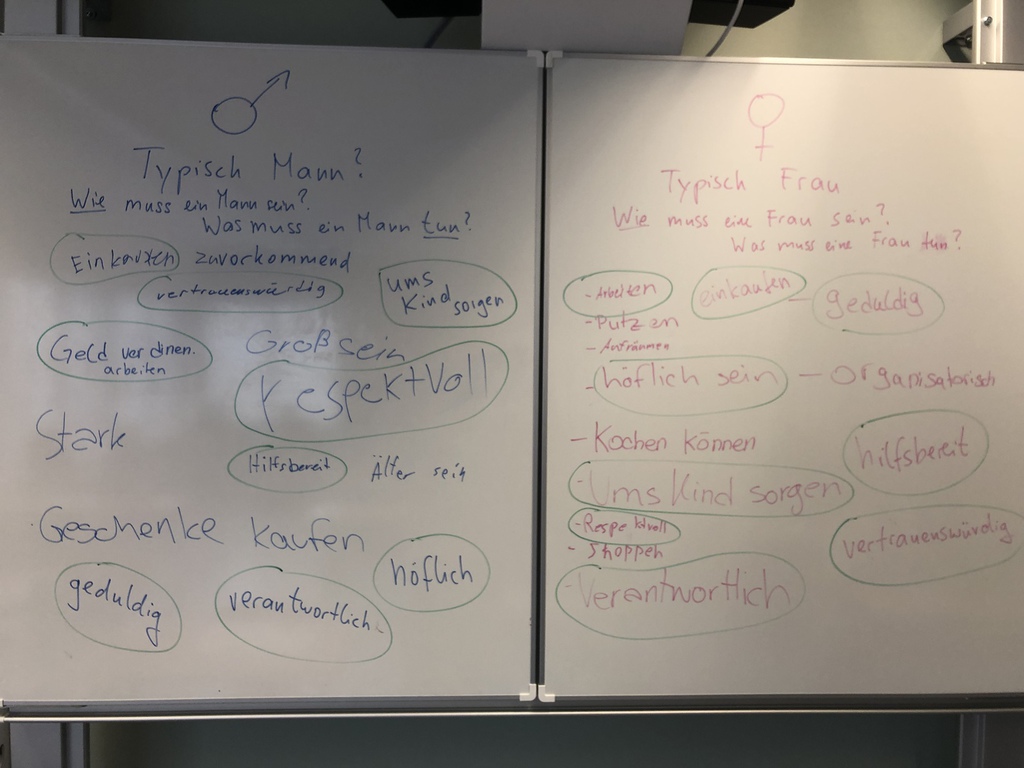 Typisch Mann?
Wie muss ein Mann sein?
Was muss ein Mann tun?
Einkaufen zuvorkommend
vertrauenswürdig
ums
Kind
sorgen
Geld verdinen.
arbeiten
Groß sein
respektvoll
Stark
Hilfsbereit
Älter sein
Geschenke kaufen
geduldig
verantwortlich
höflich
Typisch Frau
Wie muss eine Frau sein?
Was muss eine Frau tun?
- Arbeiten
einkaufen
- geduldig
- Putzen
- Aufräumen
- höflich sein
- organisatorisch
- Kochen können
hilfsbereit
- Ums Kind sorgen
- Respektvoll
vertrauenswürdig
- Shoppen
- Verantwortlich